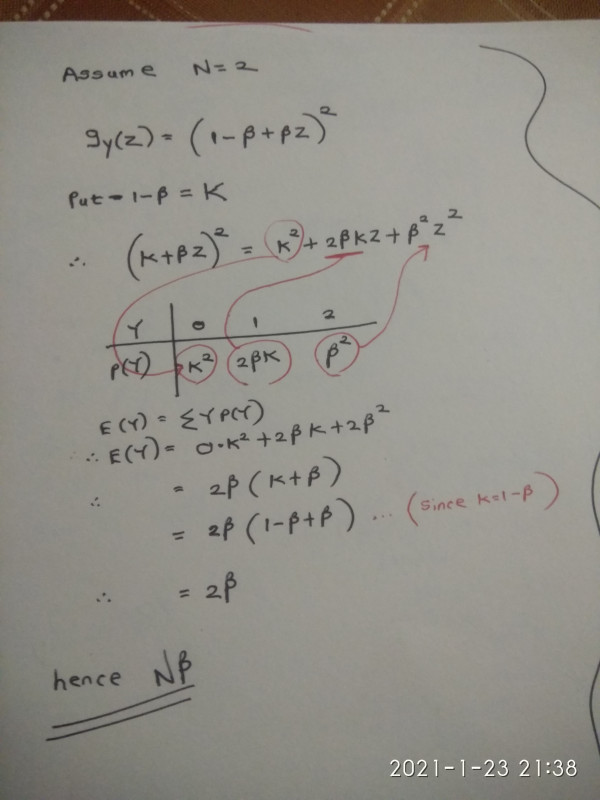 Assume N=2
g_Y(z) = (1-β+βz)²
Put 1-β = K
∴ (K+βz)² = K² + 2βKz + β²z²
Y | 0 1 2
P(Y) | K² 2βK β²
E(Y) = ΣYP(Y)
∴ E(Y) = 0·K² + 2βK + 2β²
∴ = 2β(K+β)
= 2β(1-β+β) ... (since K=1-β)
∴ = 2β
hence Nβ
2021-1-23 21:38